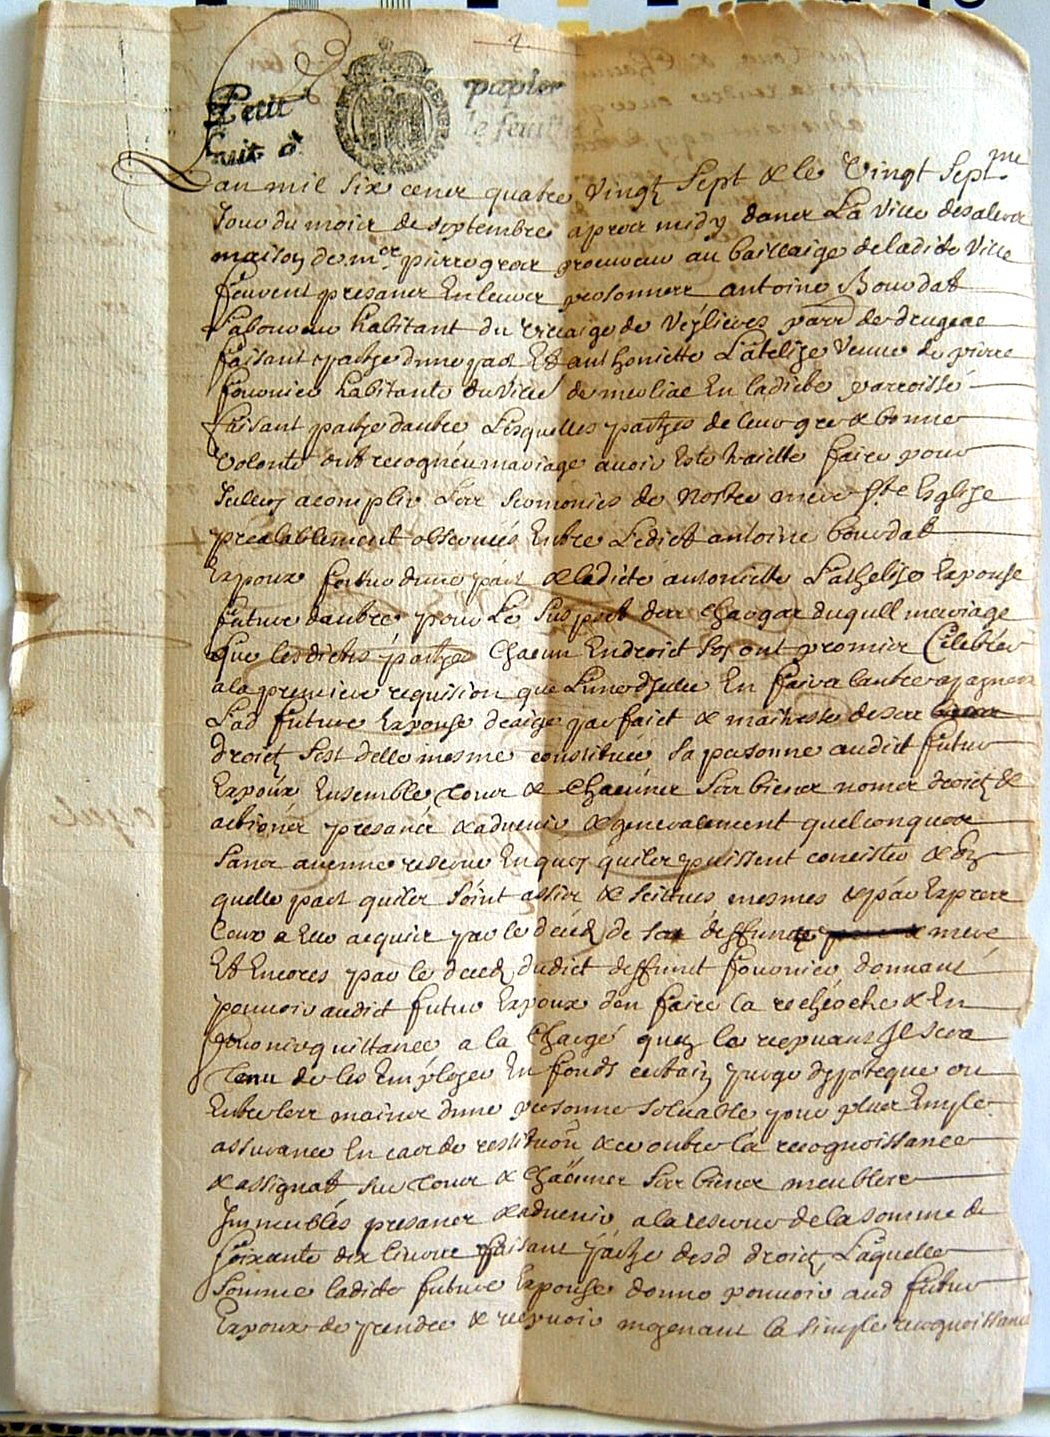 2
Petit papier
huit d le feuillet
Lan mil six cens quatre vingt sept & le vingt sept.me
Jour du mois de septembre apres midy dans La Ville de salers
maison de me pierre gros procureur au bailliaige de ladite Ville
feurent presans En leurs personnes antoine Bourdat
Laboureur habitant du villaige de Veilieres parr de drugeac
faisant partye dune part Et anthoniette Latelize Veuve de pierre
fournier habitante du Villa de meoliac En ladicte parroisse
faisant partye dautre Lesquelles partyes de leur gre & bonne
volonte ont recogneu mariage avoir Este traicte faire pour
Icelluy acomplir Les seremonies de Nostre mere Ste Esglize
prealablement observées Entre Ledict antoine bourdat
Expoux futur dune part & ladicte antoniette Lathelize Expouse
future dautre pour Le suport des charges duquell mariage
que lesdictes partyes chacun Endroict soy ont promis Celebrer
a la premiere requision que Lune dicelle En faira lautre apazment
Lad future Expouse deaige parfaict & maitresse de ses
droictz sest delle mesme constituée sa personne audict futur
Expoux Ensemble tous & chacuns ses biens noms droictz &
actions presans & advenir & generalement quelconques
sans aucune reserve En quoy quils puissent concister & En
quelle part quils soint assis & scitues mesmes & par Expres
Ceux a Elle acquis par le deced de sa deffunte mere
Et Encores par le deced dudict deffunct fournier donnant
pouvoir audict futur Expoux den faire la recherche & En
fournir quittance a la charge quen les recepvant Il sera
tenu de les Employer En fonds certain purge dypoteque ou
Entre les mains dune personne solvable pour plus Emple
assurance En cas de restituon & ce outre la recognoissance
& assignat sur tous & chacuns ses biens meubles
Immeubles presans & advenir a la reserve de la somme de
soixante dix livres faisant partye desd droictz Laquelle
somme ladicte future Expouse donne pouvoir aud futur
Expoux de prendre & recepvoir moyenant la simple recognoissance